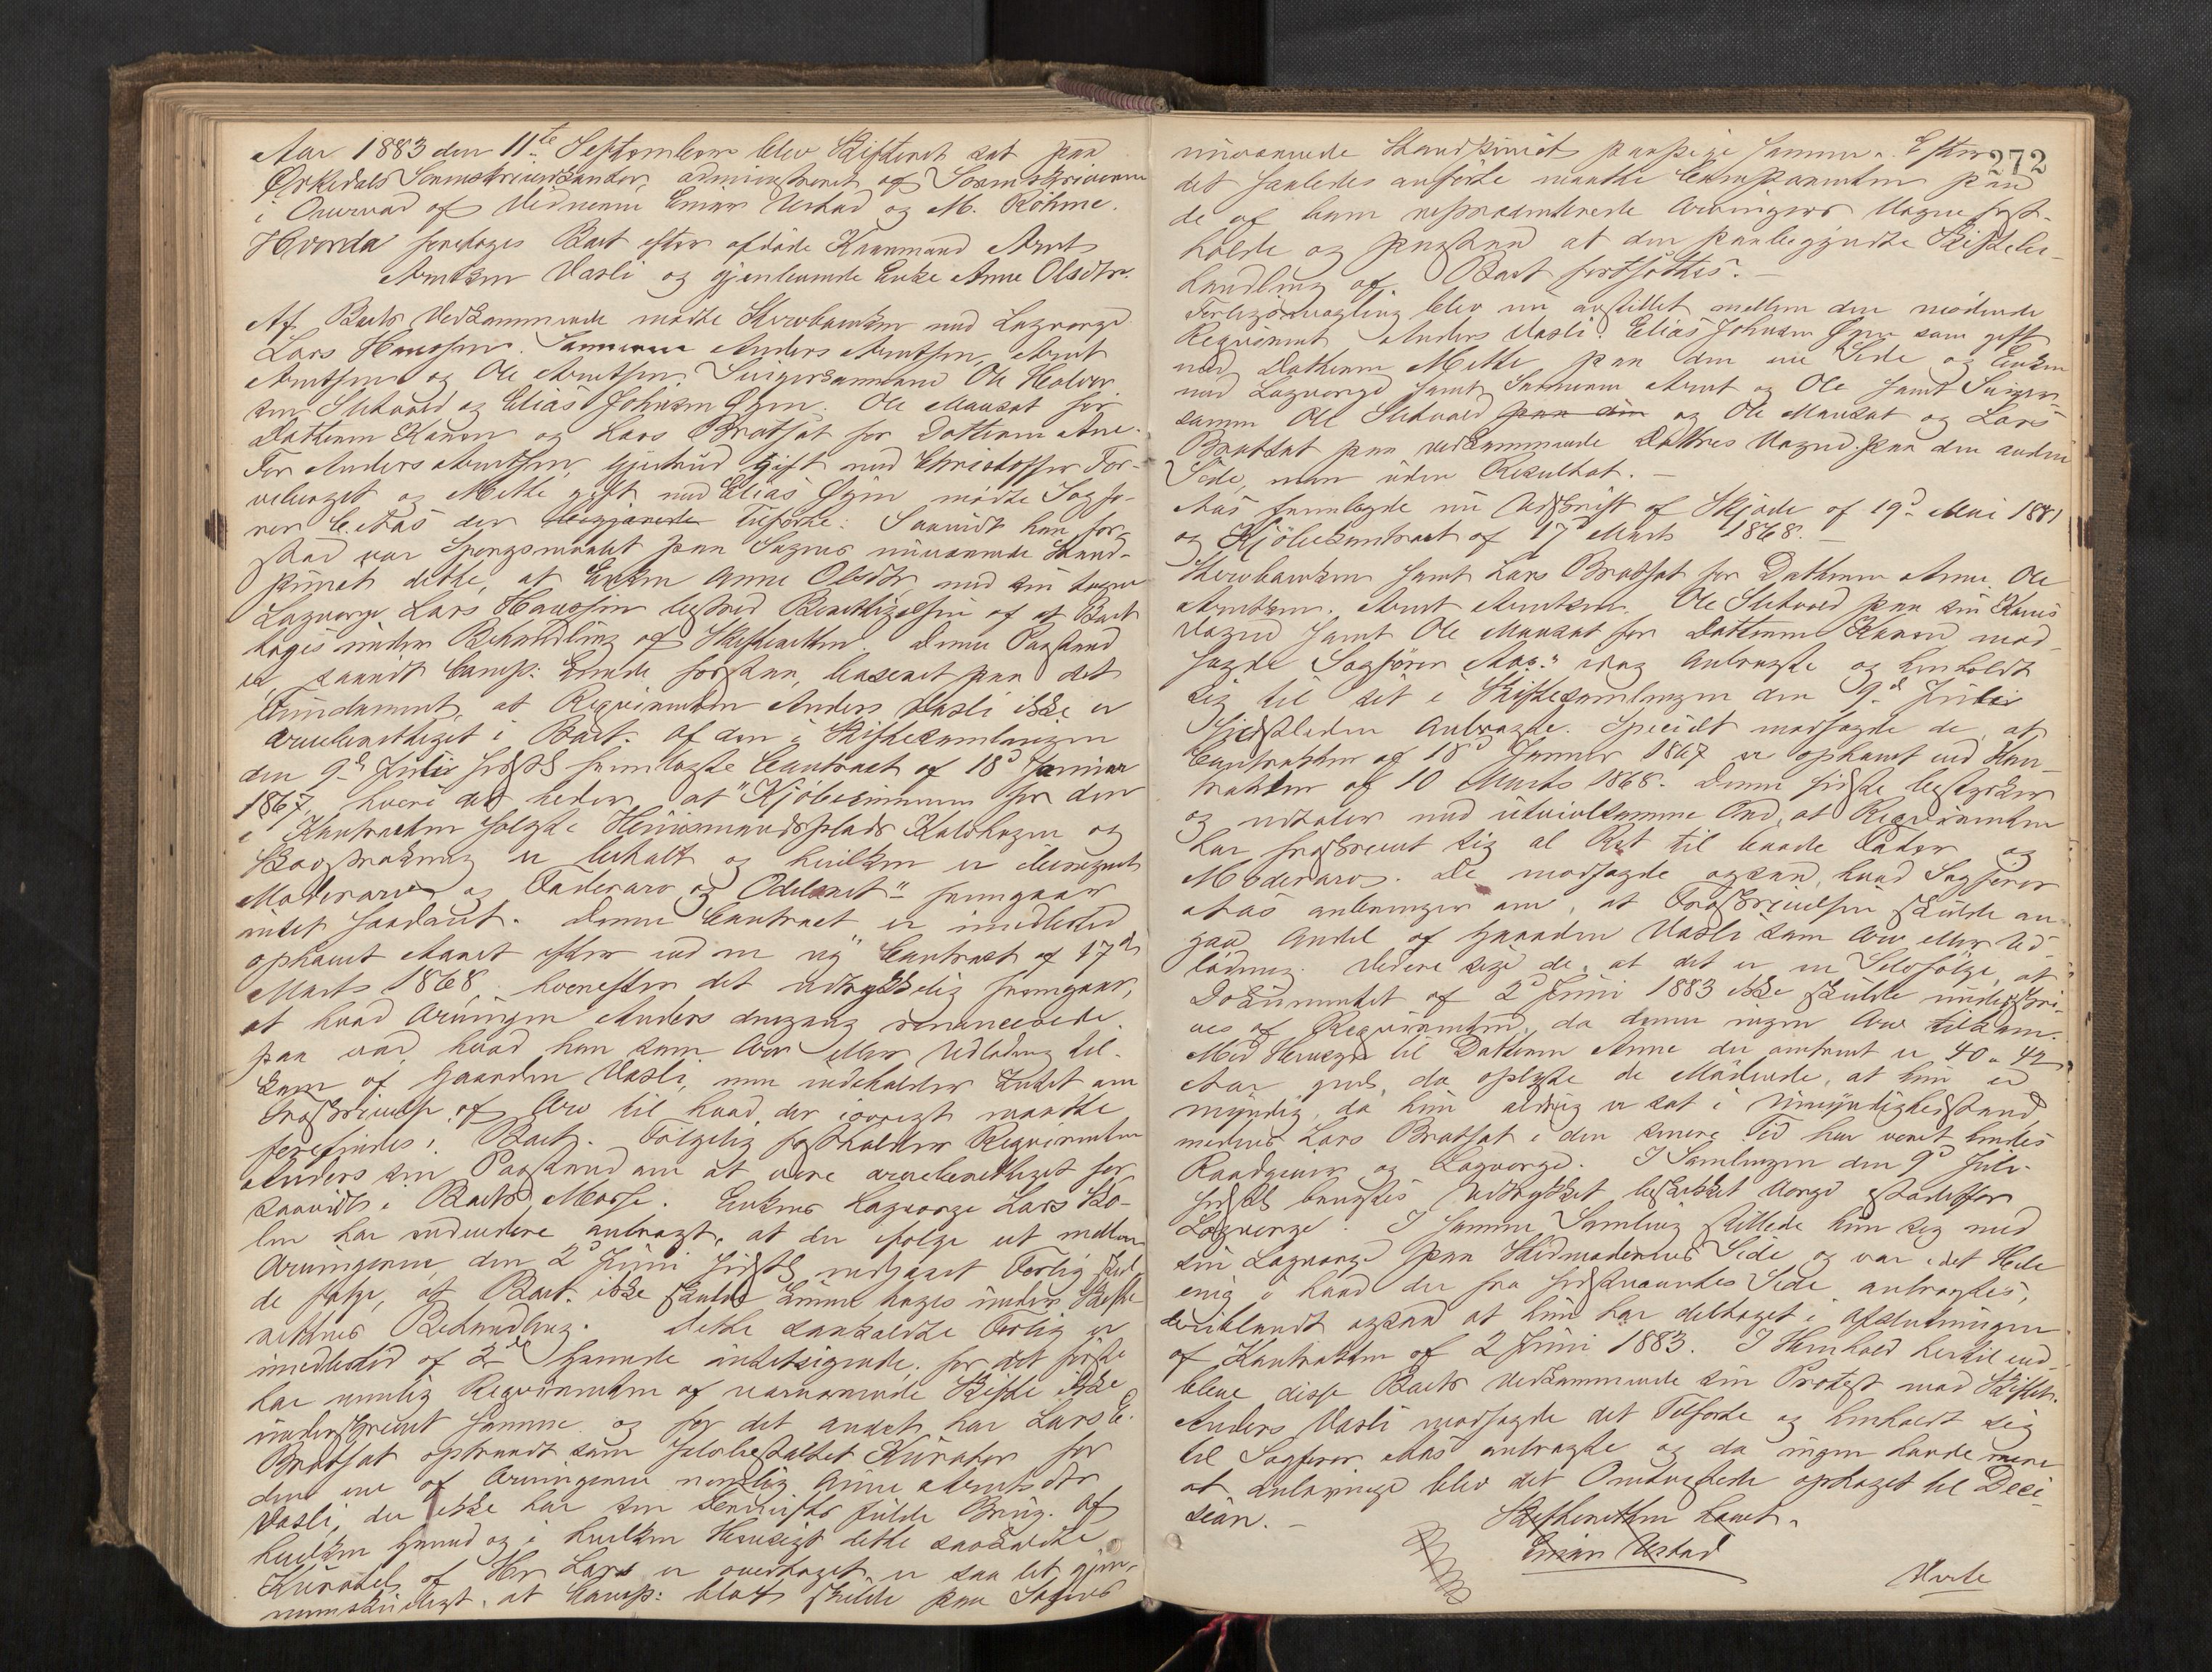 Aar 1883 den 11te September blev Skifteret sat paa
Orkedals Sorenskriverkontor, administreret af Sorenskriveren
i Overvær af Vidnerne Einar Ustad og M. Röhme.
Hvorda foretoges Boet efter afdøde Kaarmand Arnt
Arntsen Vasli og gjenlevende Enke Anne Olsdtr.
Af Boets Vedkommende mødte Stervboenken med Laugværge
Lars Haugsen. Sønnerne Anders Arntsen, Arnt
Arntsen og Ole Arntsen. Svigersønnerne Ole Halvor
sen Sletvold og Elias Johnsen Øyen. Ole Mauset for
Datteren Karen og Lars Bratset for Datteren Ane.
For Anders Arntsen, Gjertrud gift med Christoffer For-
og Mette gift med Elias Øyen mødte Sagfø-
rer C. Aas der tilførte: Saavidt han for-
stod var Spørgsmaalet paa Sagens nuværende Stand-
punct dette, at Enken Anne Olsdtr med sin
Laugværge Lars Haugsen bestred Berettigelsen af at Boet
toges under Behandling af Skifteretten. Denne Paastand
er saavidt Comp: kunde forstaa, baseret paa det
Fundament, at Reqvirenten Anders Vasli ikke er
arveberettiget i Boet. Af den i Skiftesamlingen
den 9de Juli sidstl fremlagte Contract af 18d Januar
1867, hvori det heder, at "Kjøbesummen for den
i Kontracten solgte Huusmandsplads Kalvhagen og
Skovstrækning er betalt og hvilken er beregnet
Moderarv og Faderarv og Odelsret" fremgaar
intet saadant. Denne Contract er imidlertid
ophævet Aaret efter ved en ny Contract af 17de
Marts 1868, hvorefter det udtrykkelig fremgaar,
at hvad Arvingen Anders dengang renoncerede
paa var, hvad han som Arv eller Udlodning til-
kom af Gaarden Vasli, men indeholder Intet om
Fraskrivelse af Arv til hvad der iøvrigt maatte
forefindes i Boet. Følgelig fastholder Reqvirenten
Anders sin Paastand om at være arveberettiget for
saavidt i Boets Masse. Enkens Laugværge Lars
har endvidere anbragt, at der ifølge et mellem
Arvingerne den 2d Juni sidstl indgaaet Forlig skul-
de følge, at Boet ikke skulde kunne tages under Skifte-
rettens Behandling. Dette saakaldte Forlig er
imidlertid af 2de Grunde intetsigende, for det første
har nemlig Reqvirenten af nærværende Skifte ikke
underskrevet samme og for det andet har Lars E.
Bratset optraadt som selvbestaltet Kurator for
den ene af Arvingerne nemlig Anne Arntsdtr
Vasli, der ikke har sin Fornufts fulde Brug. Af
hvilken Grund og i hvilken Hensigt dette saakaldte
Kuratel af Hr Lars er overtaget er saa let gjen-
nemskueligt, at Comp: blot skulde paa Sagens
272
nuværende Standpunct paapege samme. Efter
det saaledes anførte maatte Comparenten paa
de af ham repræsenterede Arvingers Vegne fast-
holde og paastaa at den paabegyndte Skiftebe-
handling af Boet fortsættes.
Forligsmægling blev nu anstillet mellem den mødende
Reqvirent Anders Vasli. Elias Johnsen Øyen som gift
med Datteren Mette paa den ene Side og Enken
med Laugværge samt Sønnerne Arnt og Ole samt Sviger-
sønnen Ole Sletvold paa den og Ole Mauset og Lars
Bratset paa vedkommende Døttres Vegne paa den anden
Side, men uden Resultat.
Aas fremlagde nu Udskrift af Skjøde af 19d Mai 1881
og Kjøbekontract af 17d Marts 1868.
Stervboenken samt Lars Bratset for Datteren Anne. Ole
Arntsen. Arnt Arntsen. Ole Sletvold paa sin Kones
Vegne samt Ole Mauset for Datteren Karen mod-
sagde Sagfører Aas's idag Anbragte og henholdt
sig til det i Skiftesamlingen den 9d Juli
sidstleden Anbragte. Specielt modsagde de, at
Contracten af 18d Januar 1867 er ophævet ved Kon-
trakten af 10 Marts 1868. Denne sidste bestyrker
og udtaler med utvivlsomme Ord, at Reqvirenten
har fraskrevet sig al Ret til baade Fader og
Moderarv. De modsagde ogsaa, hvad Sagfører
Aas anbringer om, at Fraskrivelsen skulde an-
gaa Andel af Gaarden Vasli som Arv eller Ud-
lodning. Videre sige de, at det er en Selvfølge, at
Dokumentet af 2d Juni 1883 ikke skulde underskri-
ves af Reqvirenten, da denne ingen Arv tilkom.
Med Hensyn til Datteren Anne der omtrent er 40 a 42
Aar gml, da oplyste de Mødende, at hun er
myndig, da hun aldrig er sat i Umyndighedsstand,
medens Lars Bratset i den senere Tid har været hendes
Raadgiver og Laugværge. I Samlingen den 9d Juli
sidstl brugtes Udtrykket beskikket Værge istedetfor
Laugværge. I samme Samling stillede hun sig med
sin Laugværge paa Stedmoderens Side og var i det Hele
enig i hvad der fra sidstnævntes Side anbragtes,
deriblandt ogsaa at hun har deltaget i Afslutningen
af Kontrakten af 2 Juni 1883. I Henhold hertil ned-
bleve disse Boets Vedkommende sin Protest mod Skiftet.
Anders Vasli modsagde det Tilførte og henholdt sig
til Sagfører Aas's anbragte og da ingen havde mere
at anbringe blev det Omtvistede optaget til Deci-
sion.
Skifteretten hævet.
Einar Ustad
Verte